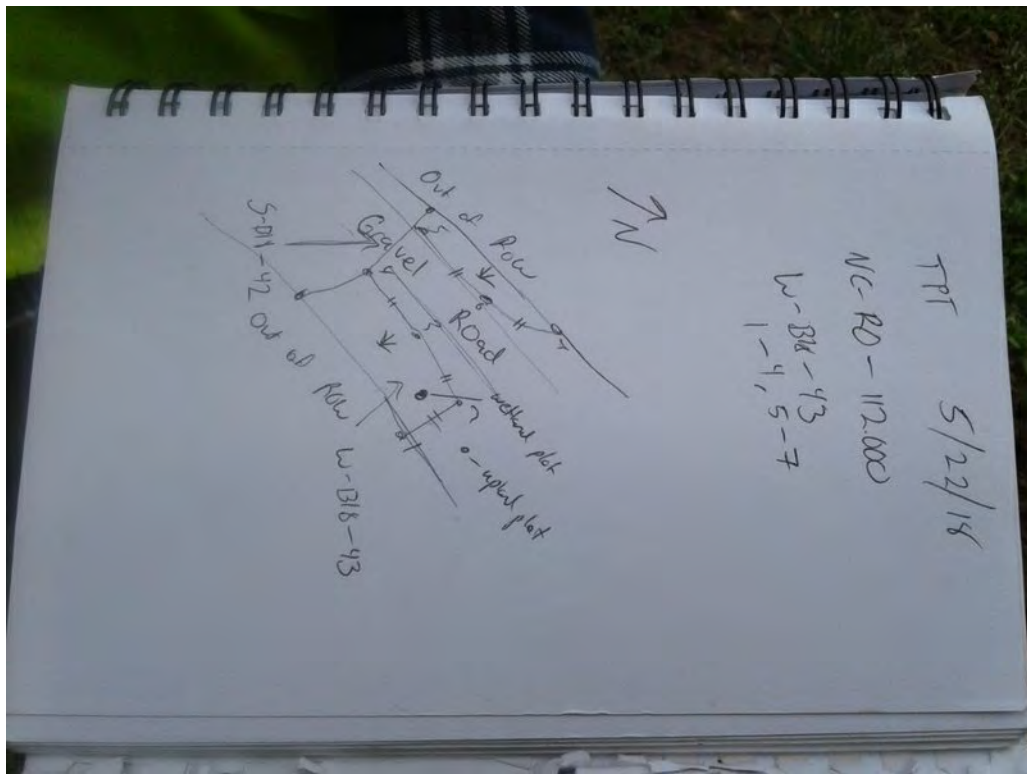 TPT 5/22/18
NC-RO-112.000
W-B18-43
1-4, 5-7
N
Out of ROW
Gravel
ROad
S-D18-42
Out of ROW
W-B18-43
wetland plot
o-upland plot